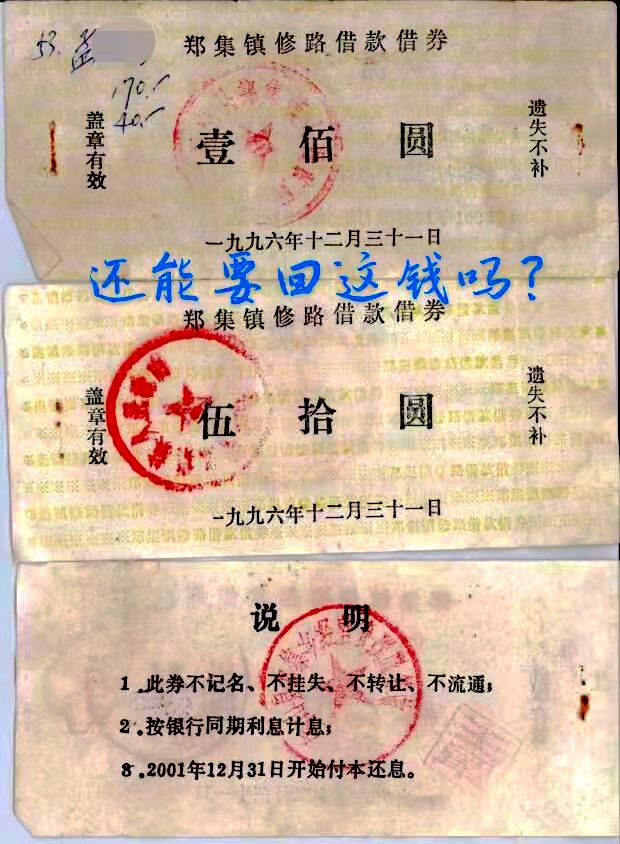 53.
170.-
40.-
郑集镇修路借款借券
盖章有效
壹佰圆
遗失不补
一九九六年十二月三十一日
还能要回这钱吗?
郑集镇修路借款借券
盖章有效
伍拾圆
遗失不补
一九九六年十二月三十一日
说明
1.此券不记名、不挂失、不转让、不流通;
2.按银行同期利息计息;
3.2001年12月31日开始付本还息。